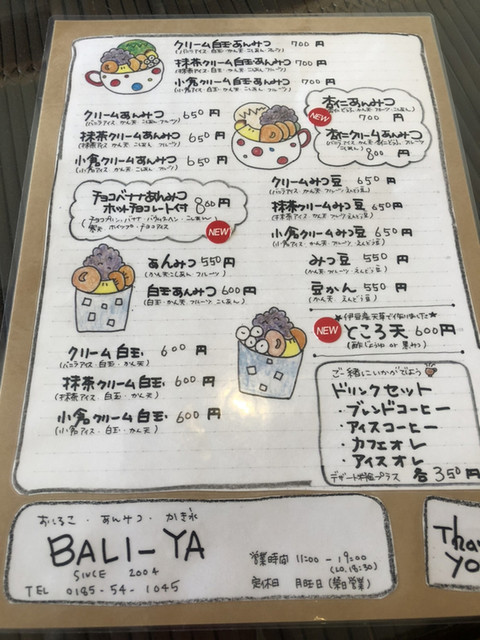 クリーム白玉あんみつ 700円
(バニラアイス・白玉・かん天・こしあん・フルーツ)
抹茶クリーム白玉あんみつ 700円
小倉クリーム白玉あんみつ 700円
クリームあんみつ 650円
(バニラアイス・かん天・こしあん・フルーツ)
抹茶クリームあんみつ 650円
(抹茶アイス・かん天・こしあん・フルーツ)
小倉クリームあんみつ 650円
(小倉アイス・かん天・こしあん・フルーツ)
杏仁あんみつ
NEW
700円
杏仁クリームあんみつ
800円
チョコバナナあんみつ
ホットチョコレート付 800円
NEW
クリームみつ豆 650円
抹茶クリームみつ豆 650円
小倉クリームみつ豆 650円
みつ豆 550円
(かん天・フルーツ・えんどう豆)
豆かん 550円
(かん天・えんどう豆)
あんみつ 550円
(かん天・こしあん・フルーツ)
白玉あんみつ 600円
(白玉・かん天・フルーツ・こしあん)
NEW
ところ天 600円
(酢じょうゆ or 黒みつ)
クリーム白玉 600円
(バニラアイス・白玉・かん天)
抹茶クリーム白玉 600円
(抹茶アイス・白玉・かん天)
小倉クリーム白玉 600円
(小倉アイス・白玉・かん天)
ご一緒にいかがでしょう
ドリンクセット
・ブレンドコーヒー
・アイスコーヒー
・カフェオレ
・アイスオレ
デザート料金プラス 各350円
おところ・あんみつ・かき氷
BALI-YA
SINCE 2004
TEL 0185-54-1045
営業時間 11:00-19:00
(L.O.18:30)
定休日 月曜日(祭日営業)